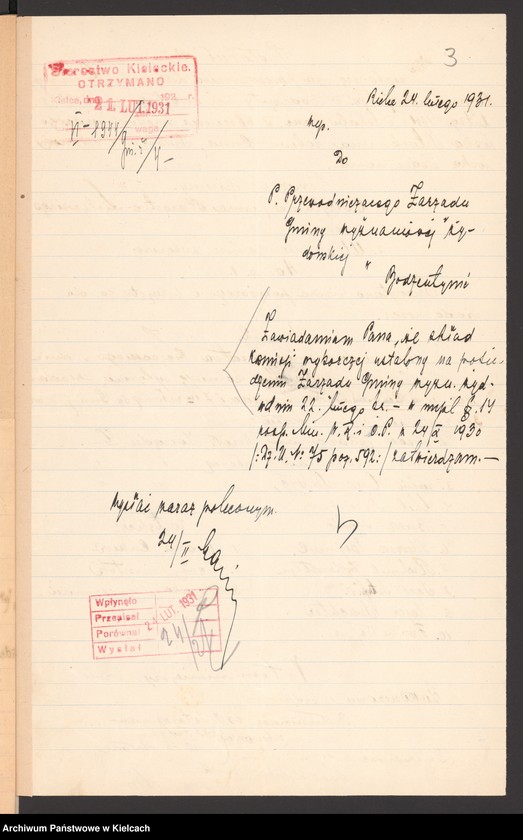 3
Starostwo Kieleckie.
OTRZYMANO
Kielce, dnia 21 LUT. 1931 192 r.
Kielce 24. lutego 1931.
Do
P. Przewodniczącego Zarządu
Gminy wyznaniowej ży-
dowskiej
w
Bodzentynie
Zawiadamiam Pana, że skład
Komisji wyborczej ustalony na posie-
dzeniu Zarządu Gminy wyzn. żyd.
w dniu 22. lutego br. – w myśl § 14
rozp. Min. W. R. i O. P. z 24/X 1930
/: Dz. U. Nr 75 poz. 592 :/ zatwierdzam. —
Wysłać zaraz poleconym.
24/II
Wpłynęło 24 LUT. 1931
Przepisał
Porównał 24/II
Wysłał
Archiwum Państwowe w Kielcach